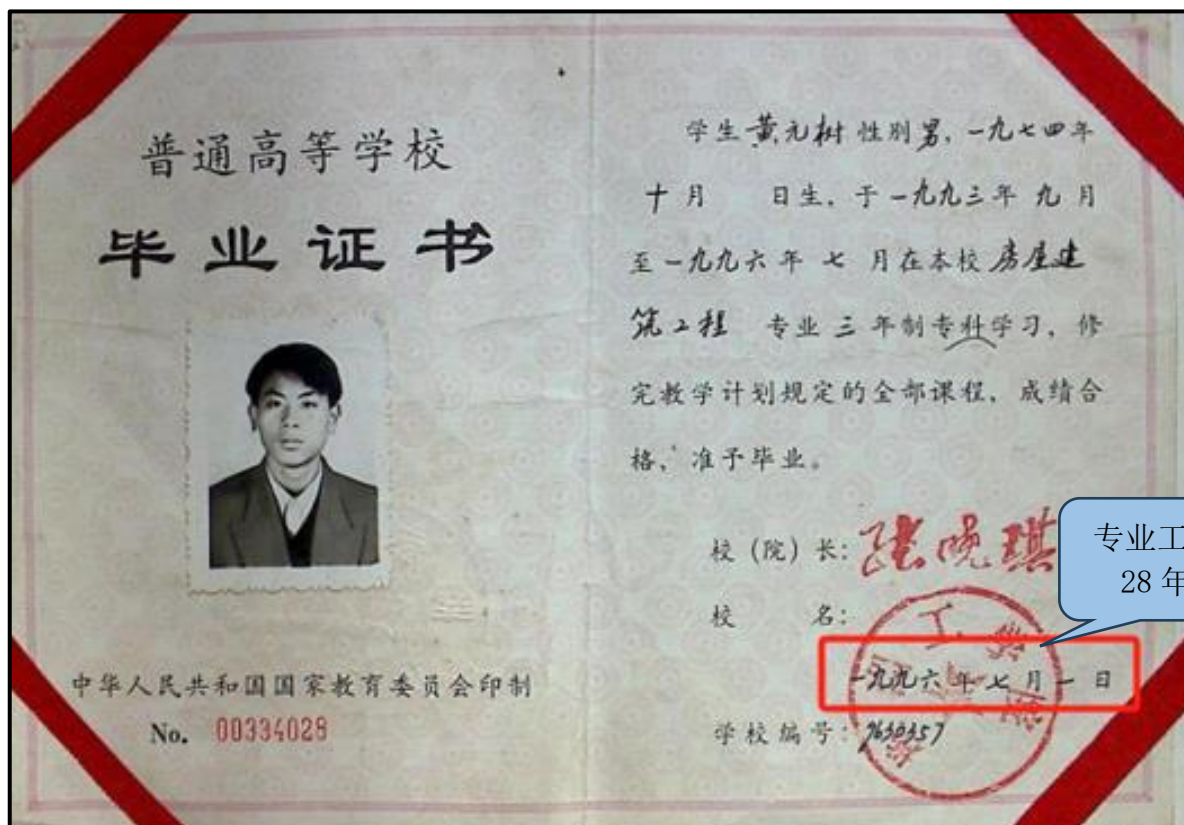 普通高等学校
毕业证书
中华人民共和国国家教育委员会印制
No. 00334028
学生黄元树性别男,一九七四年
十月 日生,于一九九三年九月
至一九九六年七月在本校房屋建
筑工程 专业三年制专科学习,修
完教学计划规定的全部课程,成绩合
格,准予毕业。
校(院)长:张晓琪
校 名:
一九九六年七月一日
学校编号:9630357
专业工
28年